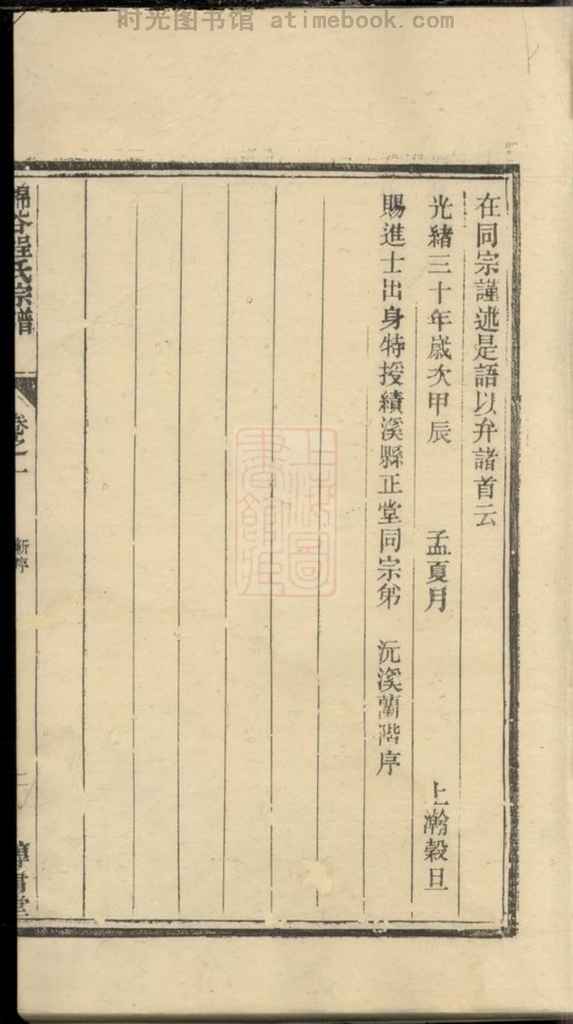 时光图书馆 atimebook.com
在同宗謹述是語以弁諸首云
光緒三十年歲次甲辰 孟夏月 上瀚穀旦
賜進士出身特授績溪縣正堂同宗弟 沅溪蘭階序
程氏宗譜
卷之一
新序